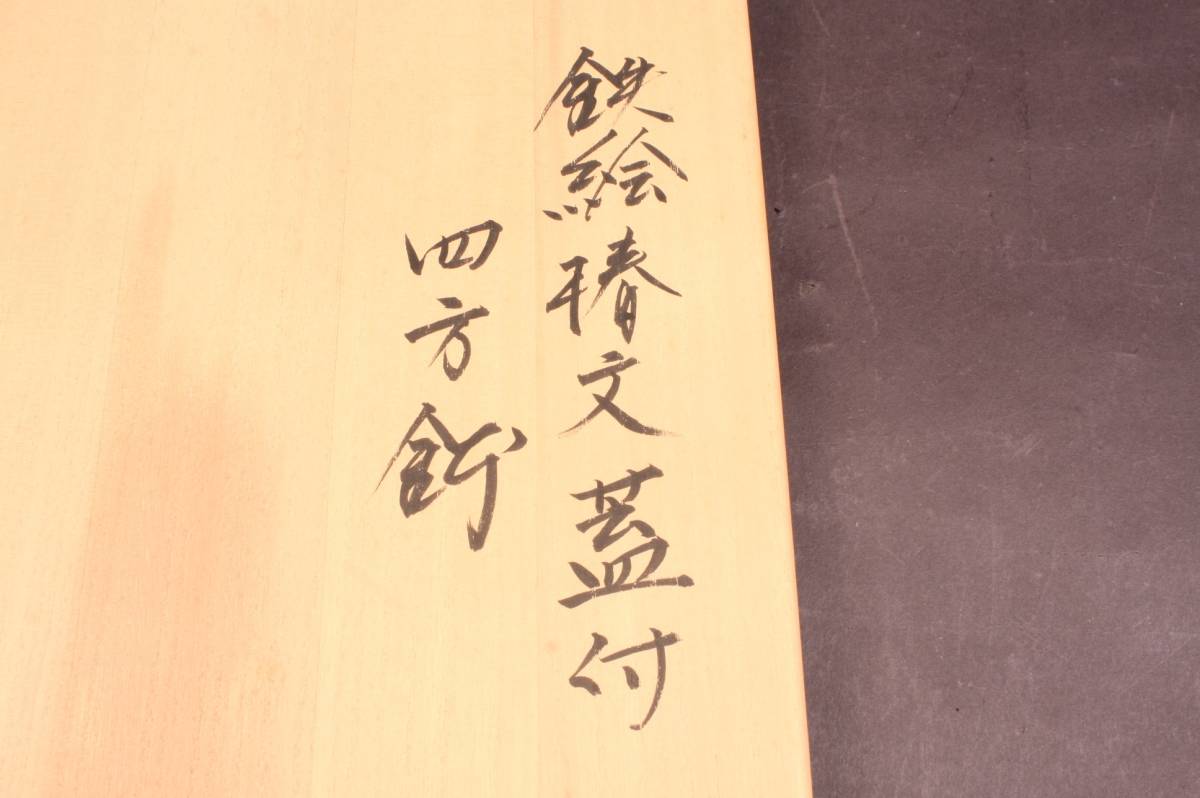 鉄絵椿文蓋付
四方鉢